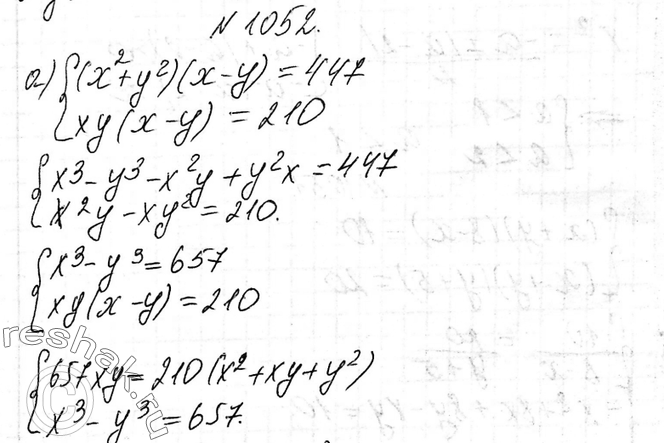 № 1052.
а) {(x²+y²)(x-y) = 447
{xy(x-y) = 210
{x³-y³-x²y+y²x = 447
{x²y-xy² = 210.
{x³-y³ = 657
{xy(x-y) = 210
{657xy = 210(x²+xy+y²)
{x³-y³ = 657.
reshak.ru